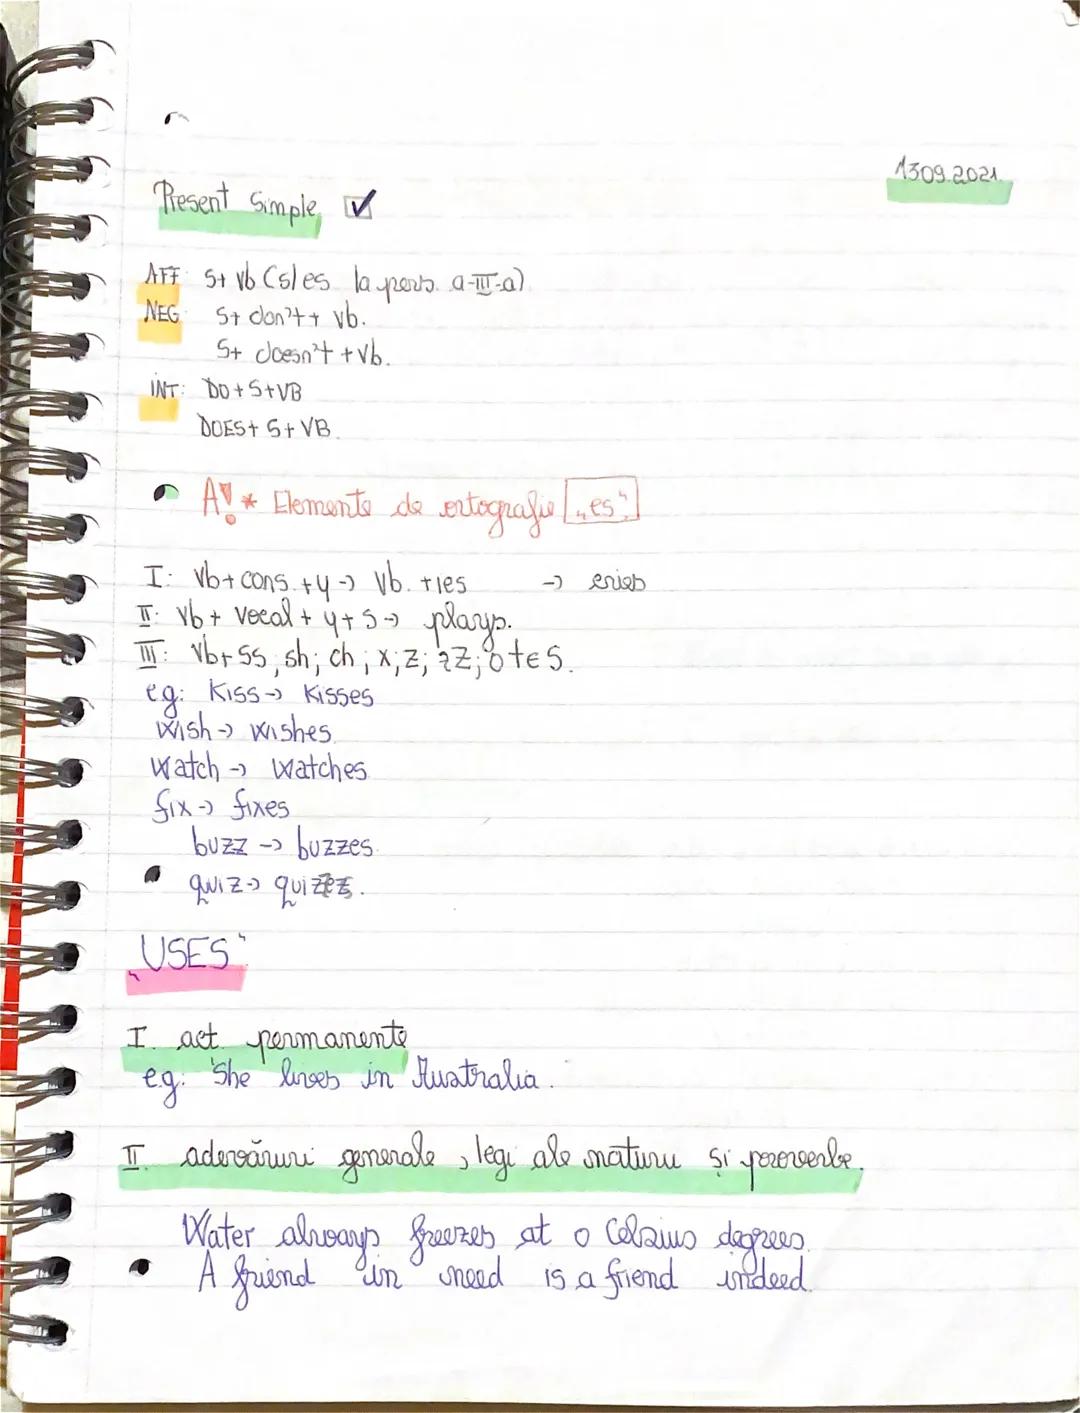 1309.2021
Present Simple
AFF: S+ Vb (s/es la pers. a-III-a)
NEG: S+ don't+ vb.
S+ doesn't +vb.
INT: DO+S+VB
DOES+ S+ VB.
A! * Elemente de ortografie „es"
I: Vb+ cons. +y -> Vb. +ies -> cries
II: Vb + vocal + y+s -> plays.
III: Vb+ss; sh; ch; x; z; zz; o +es.
eg: Kiss -> Kisses
Wish -> Wishes
Watch -> Watches
fix -> fixes
buzz -> buzzes
quiz ->
„USES"
I. act. permanente
e.g: She lives in Australia.
II. adevăruri generale, legi ale naturii și proverbe.
Water always freezes at 0 Celsius degrees.
A friend in need is a friend indeed.